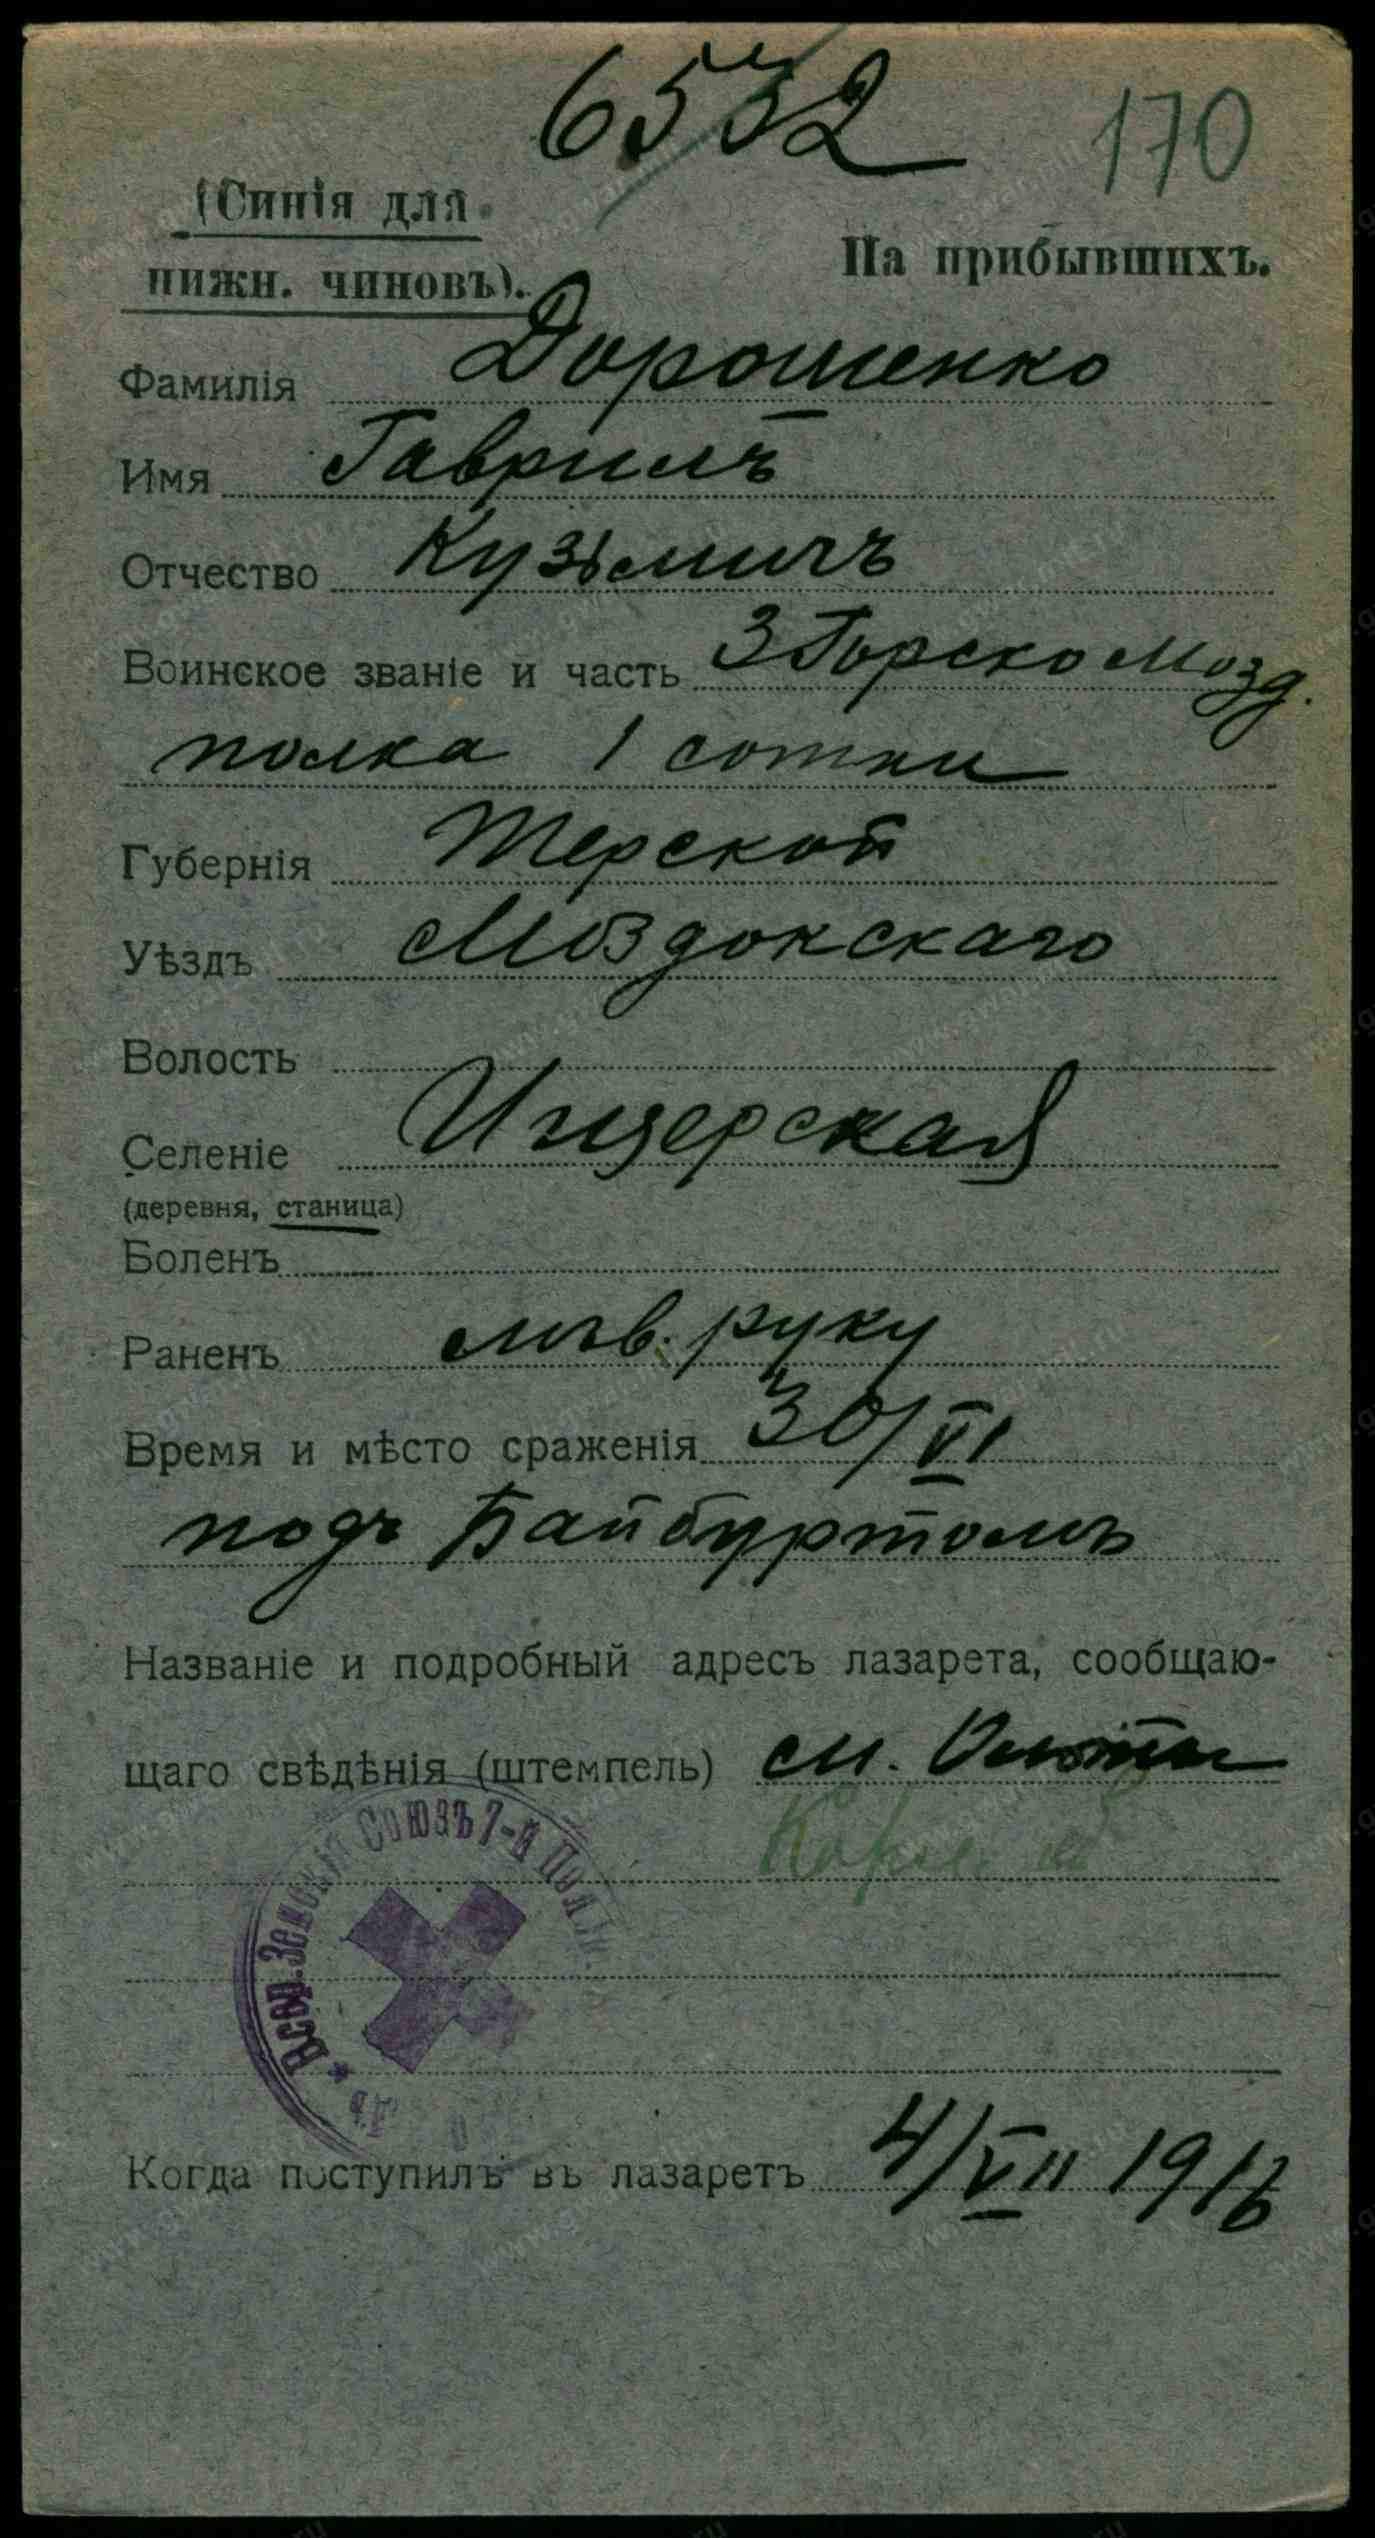 6532
170
(Синія для
нижн. чиновъ).
На прибывшихъ.
Фамилія Дорошенко
Имя Гаврилъ
Отчество Кузьмичъ
Воинское званіе и часть 3 Горско Мозд.
полка 1 сотни
Губернія Терской
Уѣздъ Моздокскаго
Волость
Селеніе Ищерская
(деревня, станица)
Боленъ
Раненъ лѣв. руку
Время и мѣсто сраженія 30/VI
подъ Байбуртомъ
Названіе и подробный адресъ лазарета, сообщаю-
щаго свѣдѣнія (штемпель) см. Ольты
Всер. Земскій Союзъ 7-й
Когда поступилъ въ лазаретъ 4/VII 1916